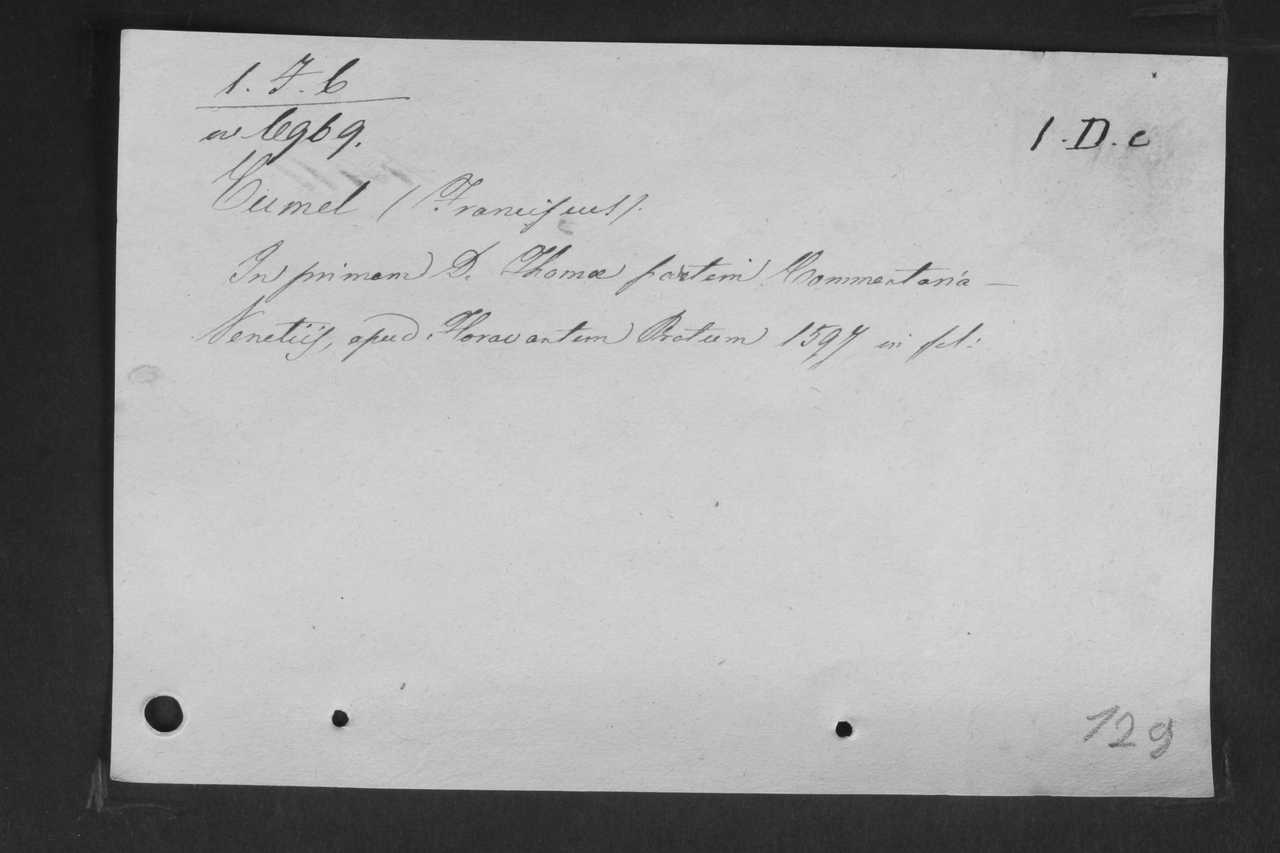 1. F. 6
1. D. c
6969.
Cumel (Franciscus).
In primam D. Thomæ partem Commentaria —
Venetiis, apud Floravantem Pratum 1597 in fol:
129